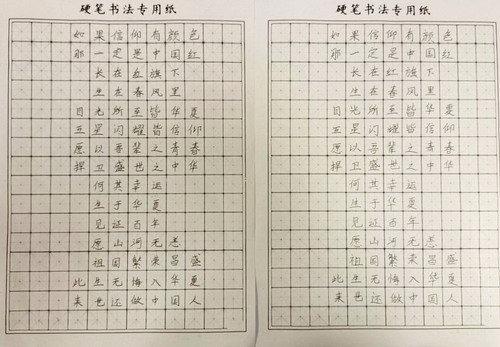 硬笔书法专用纸
如果信仰有颜色
那一定是中国红
长在红旗下
生在春风里
目光所至皆华夏
五星闪耀皆信仰
愿以吾辈之青春
捍卫盛世之中华
何其幸运
生于华夏
见证百年
愿山河无恙
祖国繁荣昌盛
此生无悔入华夏
来世还做中国人
硬笔书法专用纸
如果信仰有颜色
那一定是中国红
长在红旗下
生在春风里
目光所至皆华夏
五星闪耀皆信仰
愿以吾辈之青春
捍卫盛世之中华
何其幸运
生于华夏
见证百年
愿山河无恙
祖国繁荣昌盛
此生无悔入华夏
来世还做中国人